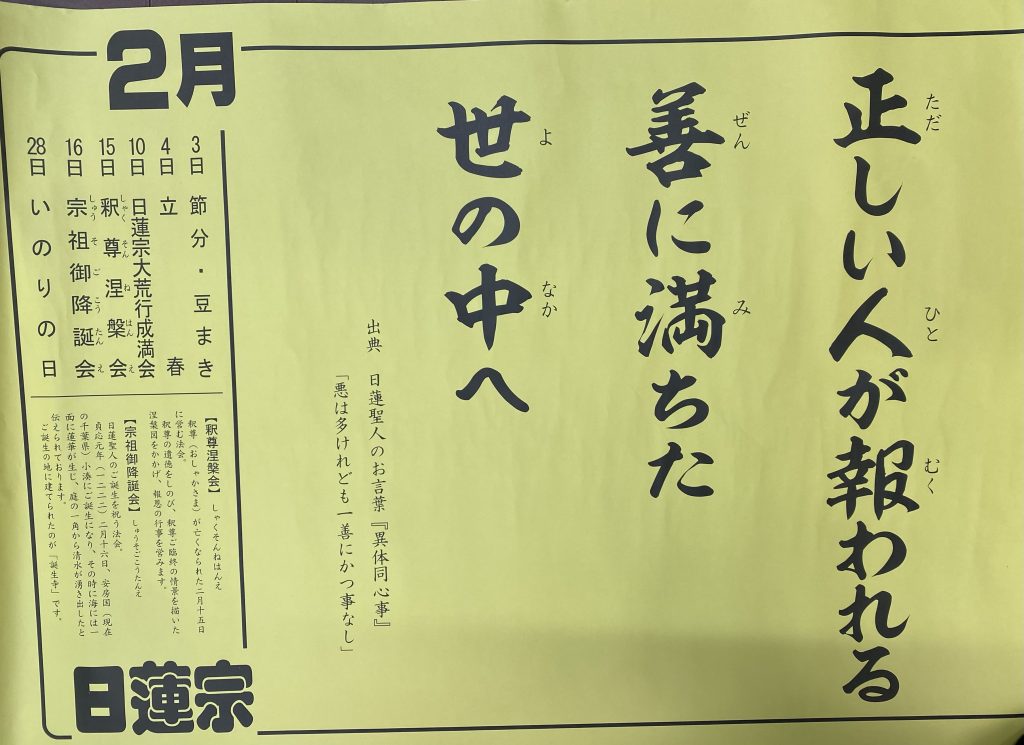 正しい人が報われる
ただ
ひと
むく
善に満ちた
ぜん
み
世の中へ
よ
なか
出典 日蓮聖人のお言葉『異体同心事』
「悪は多けれども一善にかつ事なし」
2月
3日 節分・豆まき
4日 立春
10日 日蓮宗大荒行成満会
15日 釈尊涅槃会
しゃくそんねはんえ
16日 宗祖御降誕会
しゅうそごこうたんえ
28日 いのりの日
【釈尊涅槃会】しゃくそんねはんえ
釈尊（おしゃかさま）が亡くなられた二月十五日
に営む法会。
釈尊の遺徳をしのび、釈尊ご臨終の情景を描いた
涅槃図をかかげ、報恩の行事を営みます。
【宗祖御降誕会】しゅうそごこうたんえ
日蓮聖人のご誕生を祝う法会。
貞応元年（一二二二）二月十六日、安房国（現在
の千葉県）小湊にご誕生になり、その時に海には一
面に蓮華が生じ、庭の一角から清水が湧き出したと
伝えられております。
ご誕生の地に建てられたのが「誕生寺」です。
日蓮宗